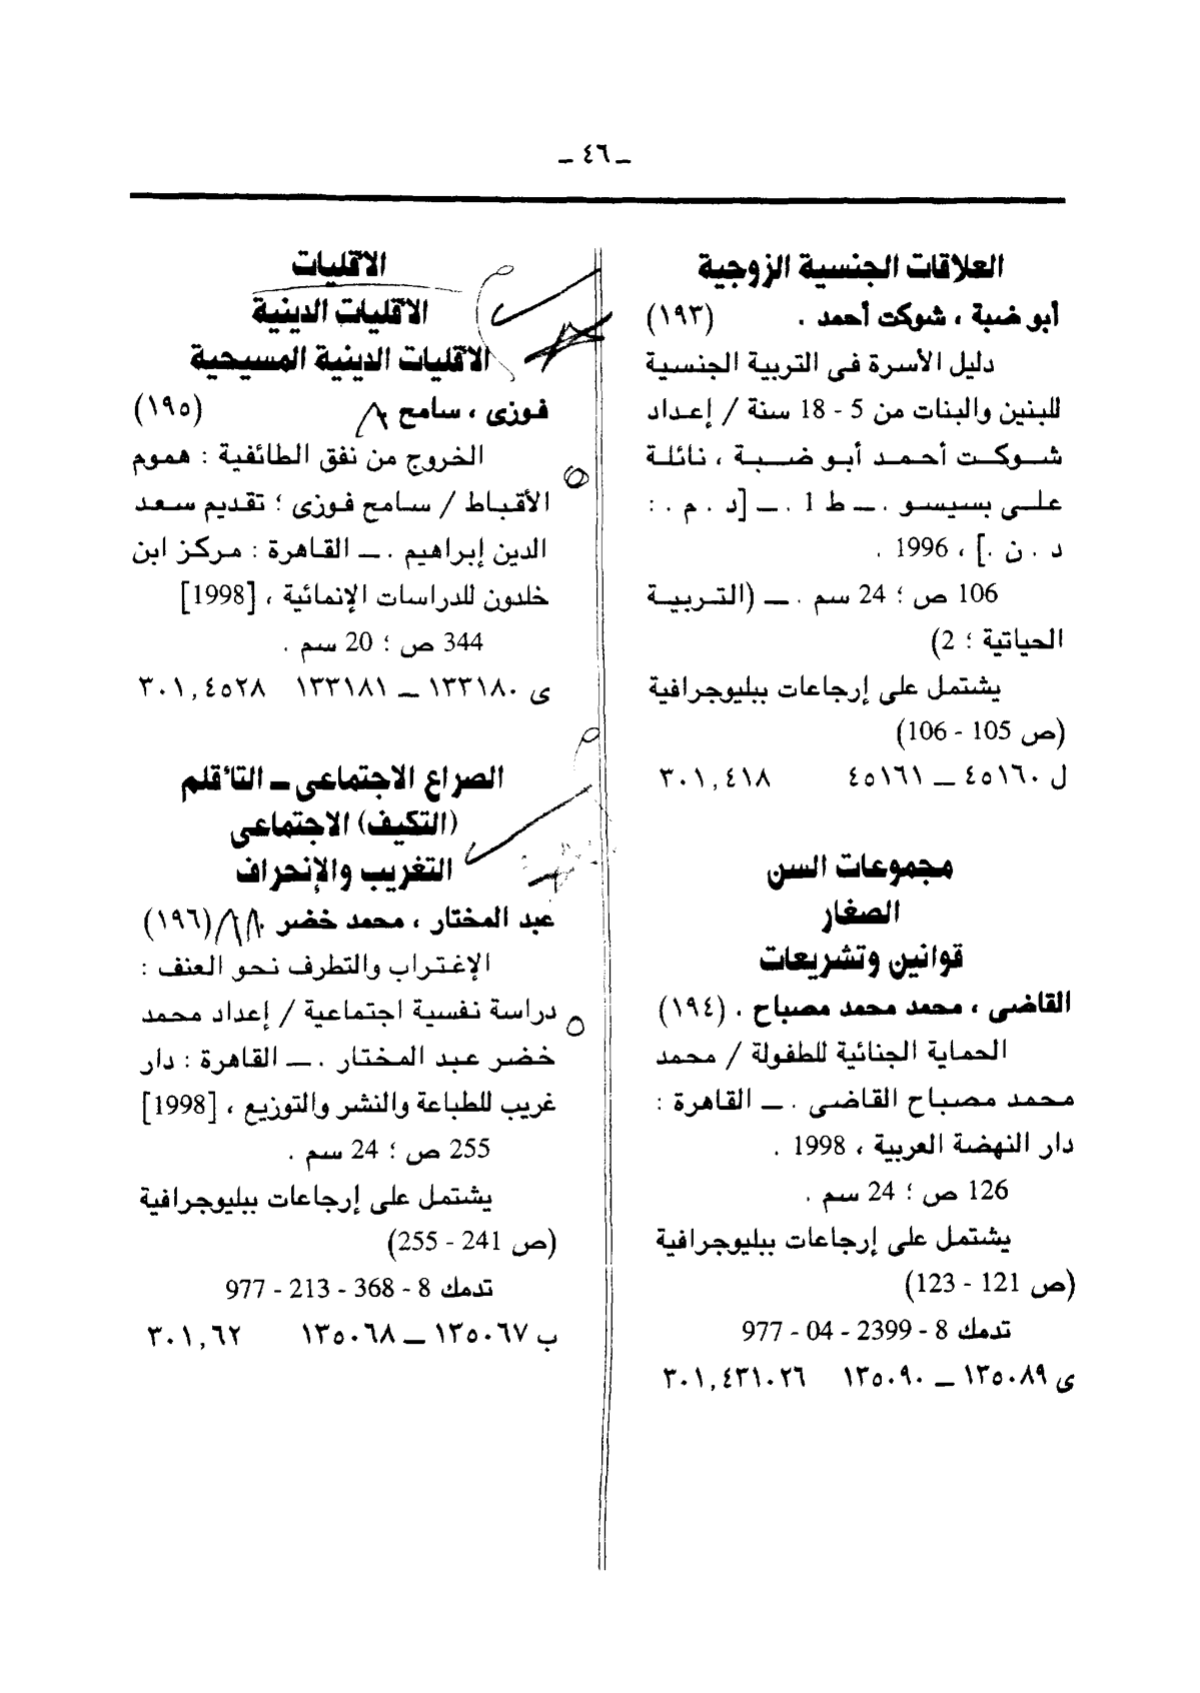 ـ ٤٦ ـ
العلاقات الجنسية الزوجية
أبو ضبة ، شوكت أحمد . (١٩٣)
دليل الأسرة فى التربية الجنسية
للبنين والبنات من 5 - 18 سنة / إعداد
شوكت أحمد أبو ضبة ، نائلة
على بسيسو . ـ ط 1 . ـ [د . م . :
د . ن .] ، 1996 .
106 ص ؛ 24 سم . ـ (التربية
الحياتية ؛ 2)
يشتمل على إرجاعات ببليوجرافية
(ص 105 - 106)
ل ٤٥١٦٠ ـ ٤٥١٦١ ٣٠١,٤١٨
مجموعات السن
الصغار
قوانين وتشريعات
القاضى ، محمد محمد مصباح . (١٩٤)
الحماية الجنائية للطفولة / محمد
محمد مصباح القاضى . ـ القاهرة :
دار النهضة العربية ، 1998 .
126 ص ؛ 24 سم .
يشتمل على إرجاعات ببليوجرافية
(ص 121 - 123)
تدمك 8 - 2399 - 04 - 977
ى ١٣٥٠٨٩ ـ ١٣٥٠٩٠ ٣٠١,٤٣١٠٢٦
الاقليات
الاقليات الدينية
الاقليات الدينية المسيحية
فوزى ، سامح (١٩٥)
الخروج من نفق الطائفية : هموم
الأقباط / سامح فوزى ؛ تقديم سعد
الدين إبراهيم . ـ القاهرة : مركز ابن
خلدون للدراسات الإنمائية ، [1998]
344 ص ؛ 20 سم .
ى ١٣٣١٨٠ ـ ١٣٣١٨١ ٣٠١,٤٥٢٨
الصراع الاجتماعى ـ التأقلم
(التكيف) الاجتماعى
التغريب والإنحراف
عبد المختار ، محمد خضر (١٩٦)
الإغتراب والتطرف نحو العنف :
دراسة نفسية اجتماعية / إعداد محمد
خضر عبد المختار . ـ القاهرة : دار
غريب للطباعة والنشر والتوزيع ، [1998]
255 ص ؛ 24 سم .
يشتمل على إرجاعات ببليوجرافية
(ص 241 - 255)
تدمك 8 - 368 - 213 - 977
ب ١٣٥٠٦٧ ـ ١٣٥٠٦٨ ٣٠١,٦٢